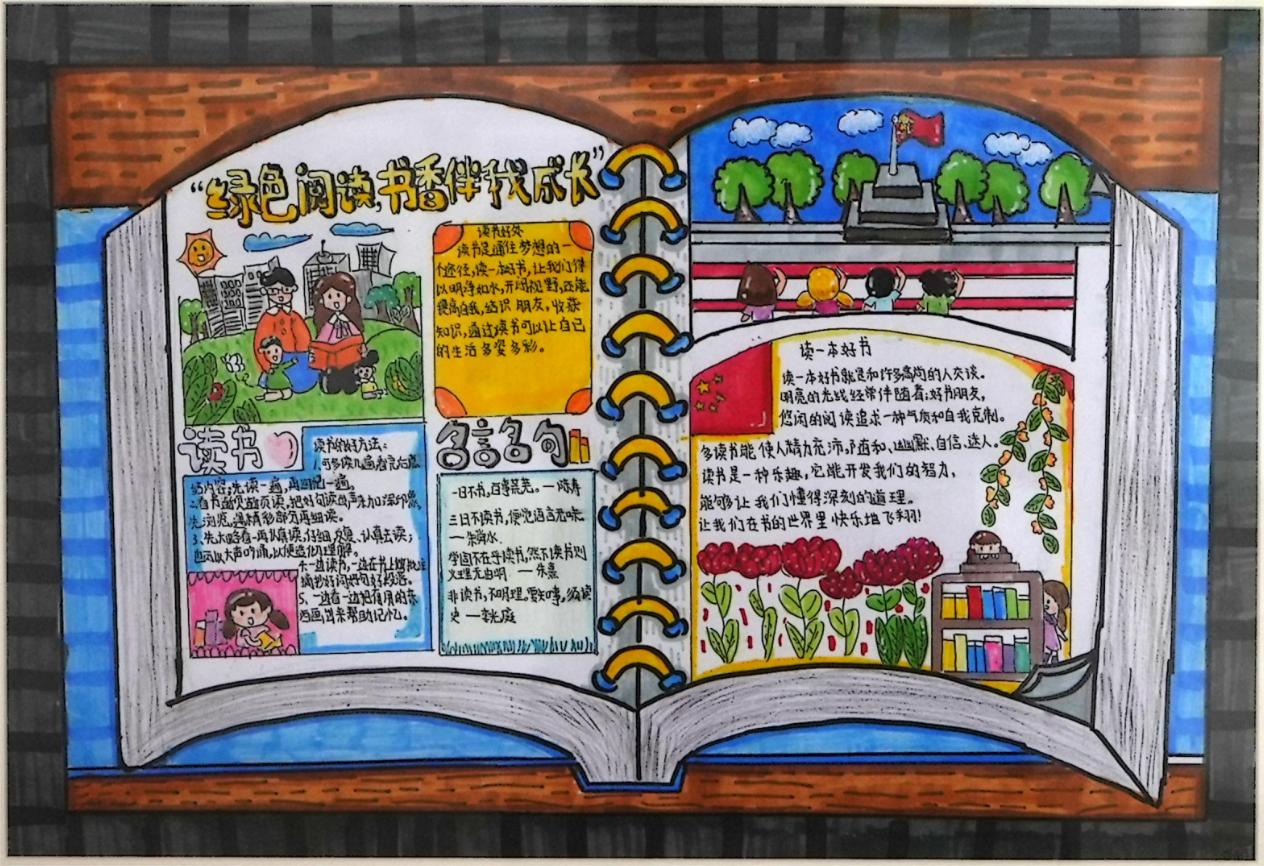 “绿色阅读,书香伴我成长”
读书好处
读书是通往梦想的一
个途径,读一本好书,让我们得
以明净如水,开阔视野,还能
提高自我,结识朋友,收获
知识,通过读书可以让自己
的生活多姿多彩。
读书
读书的好方法:
1、可多读几遍
内容,先读一遍,再回忆一遍。
3、先大略看一再认真读,仔细
也可以大声朗诵,以便造化理解。
一边读书,一边在书上做批注
摘抄好词好句好段落。
5、一边看一边把有用的东
西画出来帮助记忆。
名言名句
一日不书,百事荒芜。—
三日不读书,便觉语言无味。
—朱舜水
学固不在乎读书,然不读书则
义理无由明 —朱熹
非读书,不明理。要知事,须读
史 —李光庭
读一本好书
读一本好书就是和许多高尚的人交谈。
明亮的光线经常伴随着;好书朋友,
悠闲的阅读追求一种气质和自我克制。
多读书能使人精力充沛,随和、幽默、自信、迷人。
读书是一种乐趣,它能开发我们的智力,
能够让我们懂得深刻的道理。
让我们在书的世界里快乐地飞翔!